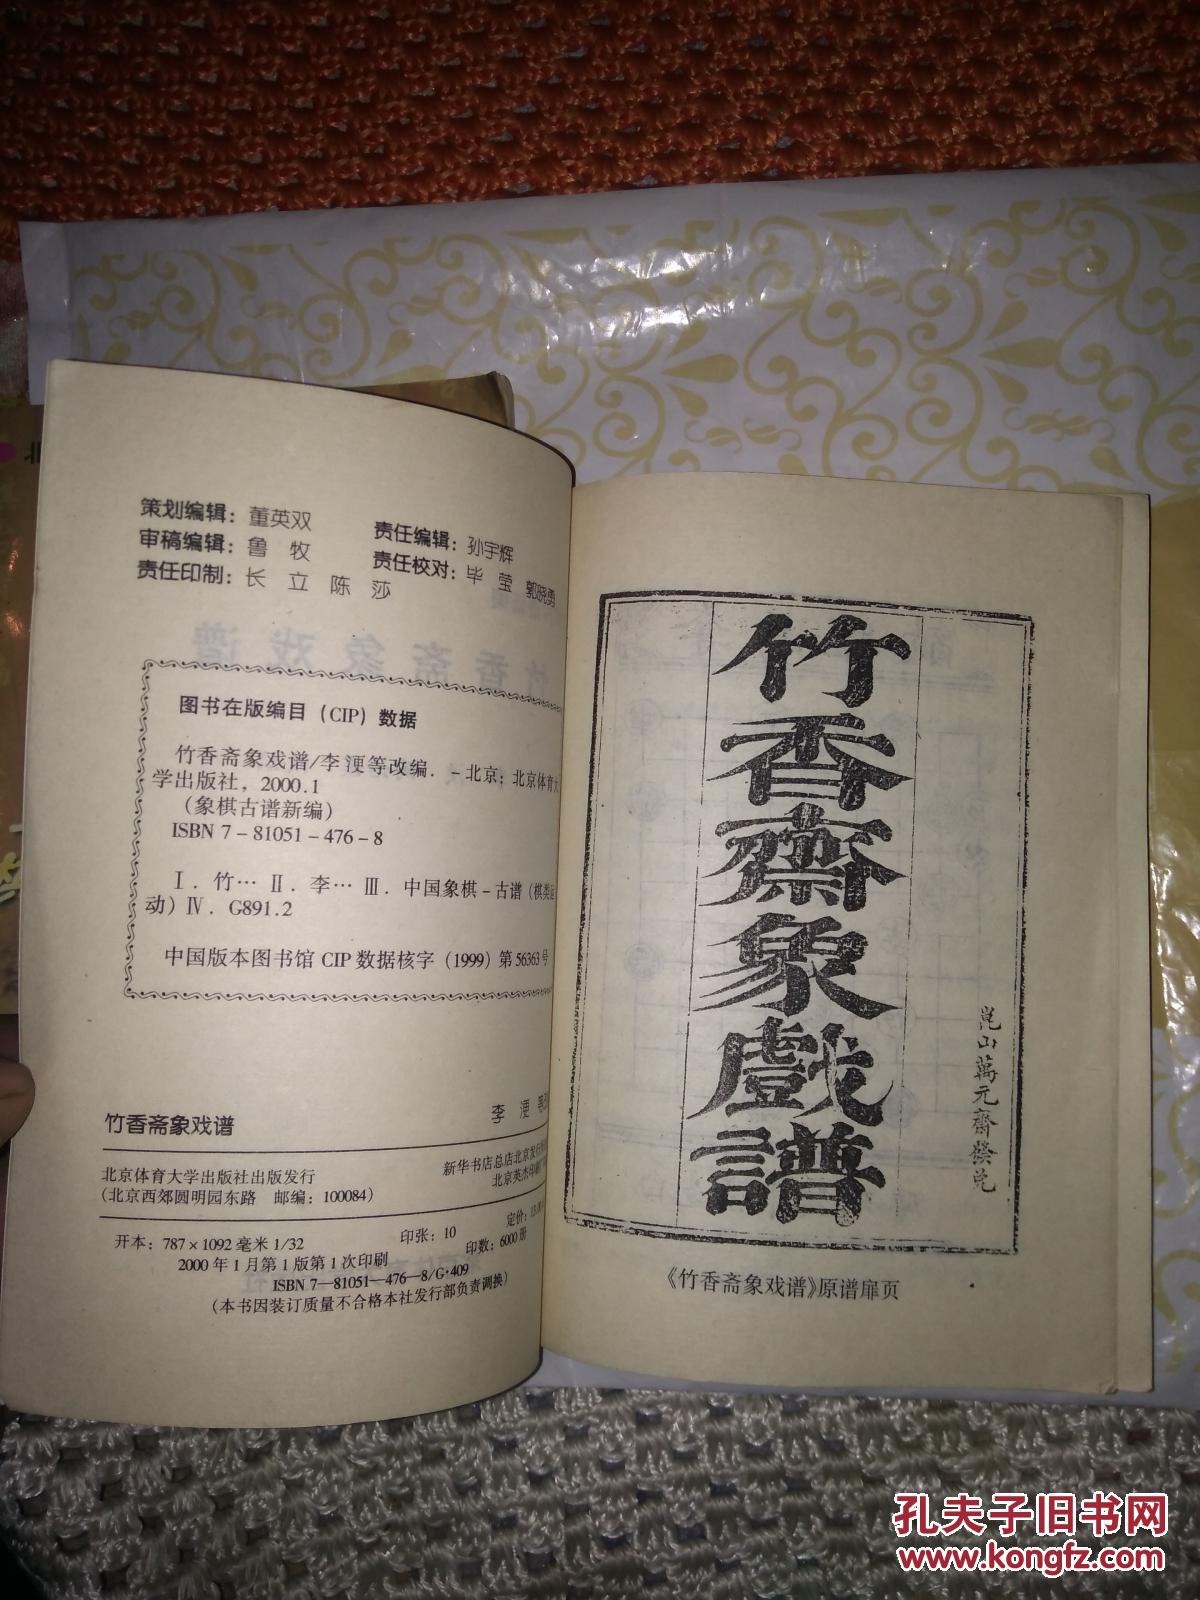 策划编辑：董英双
责任编辑：孙宇辉
审稿编辑：鲁 牧
责任校对：毕 莹 郭晓勇
责任印制：长 立 陈 莎
图书在版编目（CIP）数据
竹香斋象戏谱/李浭等改编．－北京：北京体育大
学出版社，2000.1
（象棋古谱新编）
ISBN 7－81051－476－8
Ⅰ．竹… Ⅱ．李… Ⅲ．中国象棋－古谱（棋类运
动）Ⅳ．G891.2
中国版本图书馆 CIP 数据核字（1999）第 56363 号
竹香斋象戏谱
李 浭 等
北京体育大学出版社出版发行
（北京西郊圆明园东路 邮编：100084）
新华书店总店北京发行
北京英杰印刷
开本：787×1092 毫米 1/32
印张：10
定价：
2000 年 1 月第 1 版第 1 次印刷
印数：6000 册
ISBN 7—81051—476—8/G·409
（本书因装订质量不合格本社发行部负责调换）
竹香齋象戲譜
崑山萬元齋發兑
《竹香斋象戏谱》原谱扉页
孔夫子旧书网
www.kongfz.com